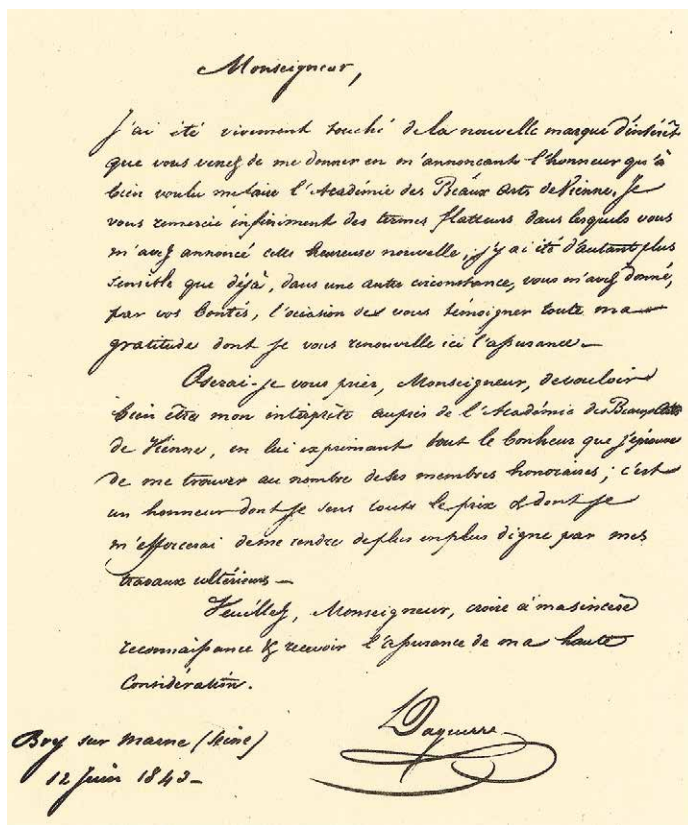 Monseigneur,
J'ai été vivement touché de la nouvelle marque d'intérêt
que vous venez de me donner en m'annonçant l'honneur qu'à
bien voulu me faire l'Académie des Beaux Arts de Vienne. Je
vous remercie infiniment des termes flatteurs dans lesquels vous
m'avez annoncé cette heureuse nouvelle, j'y ai été d'autant plus
sensible que déjà, dans une autre circonstance, vous m'avez donné,
par vos bontés, l'occasion de vous témoigner toute ma
gratitude dont je vous renouvelle ici l'assurance.—
Oserai-je vous prier, Monseigneur, de vouloir
bien être mon interprète auprès de l'Académie des Beaux Arts
de Vienne, en lui exprimant tout le bonheur que j'éprouve
de me trouver au nombre de ses membres honoraires; c'est
un honneur dont je sens toute le prix & dont je
m'efforcerai de me rendre de plus en plus digne par mes
travaux ultérieurs—
Veuillez, Monseigneur, croire à ma sincère
reconnaissance & recevoir l'assurance de ma haute
Considération.
Daguerre
Bry sur Marne (Seine)
12 Juin 1843—